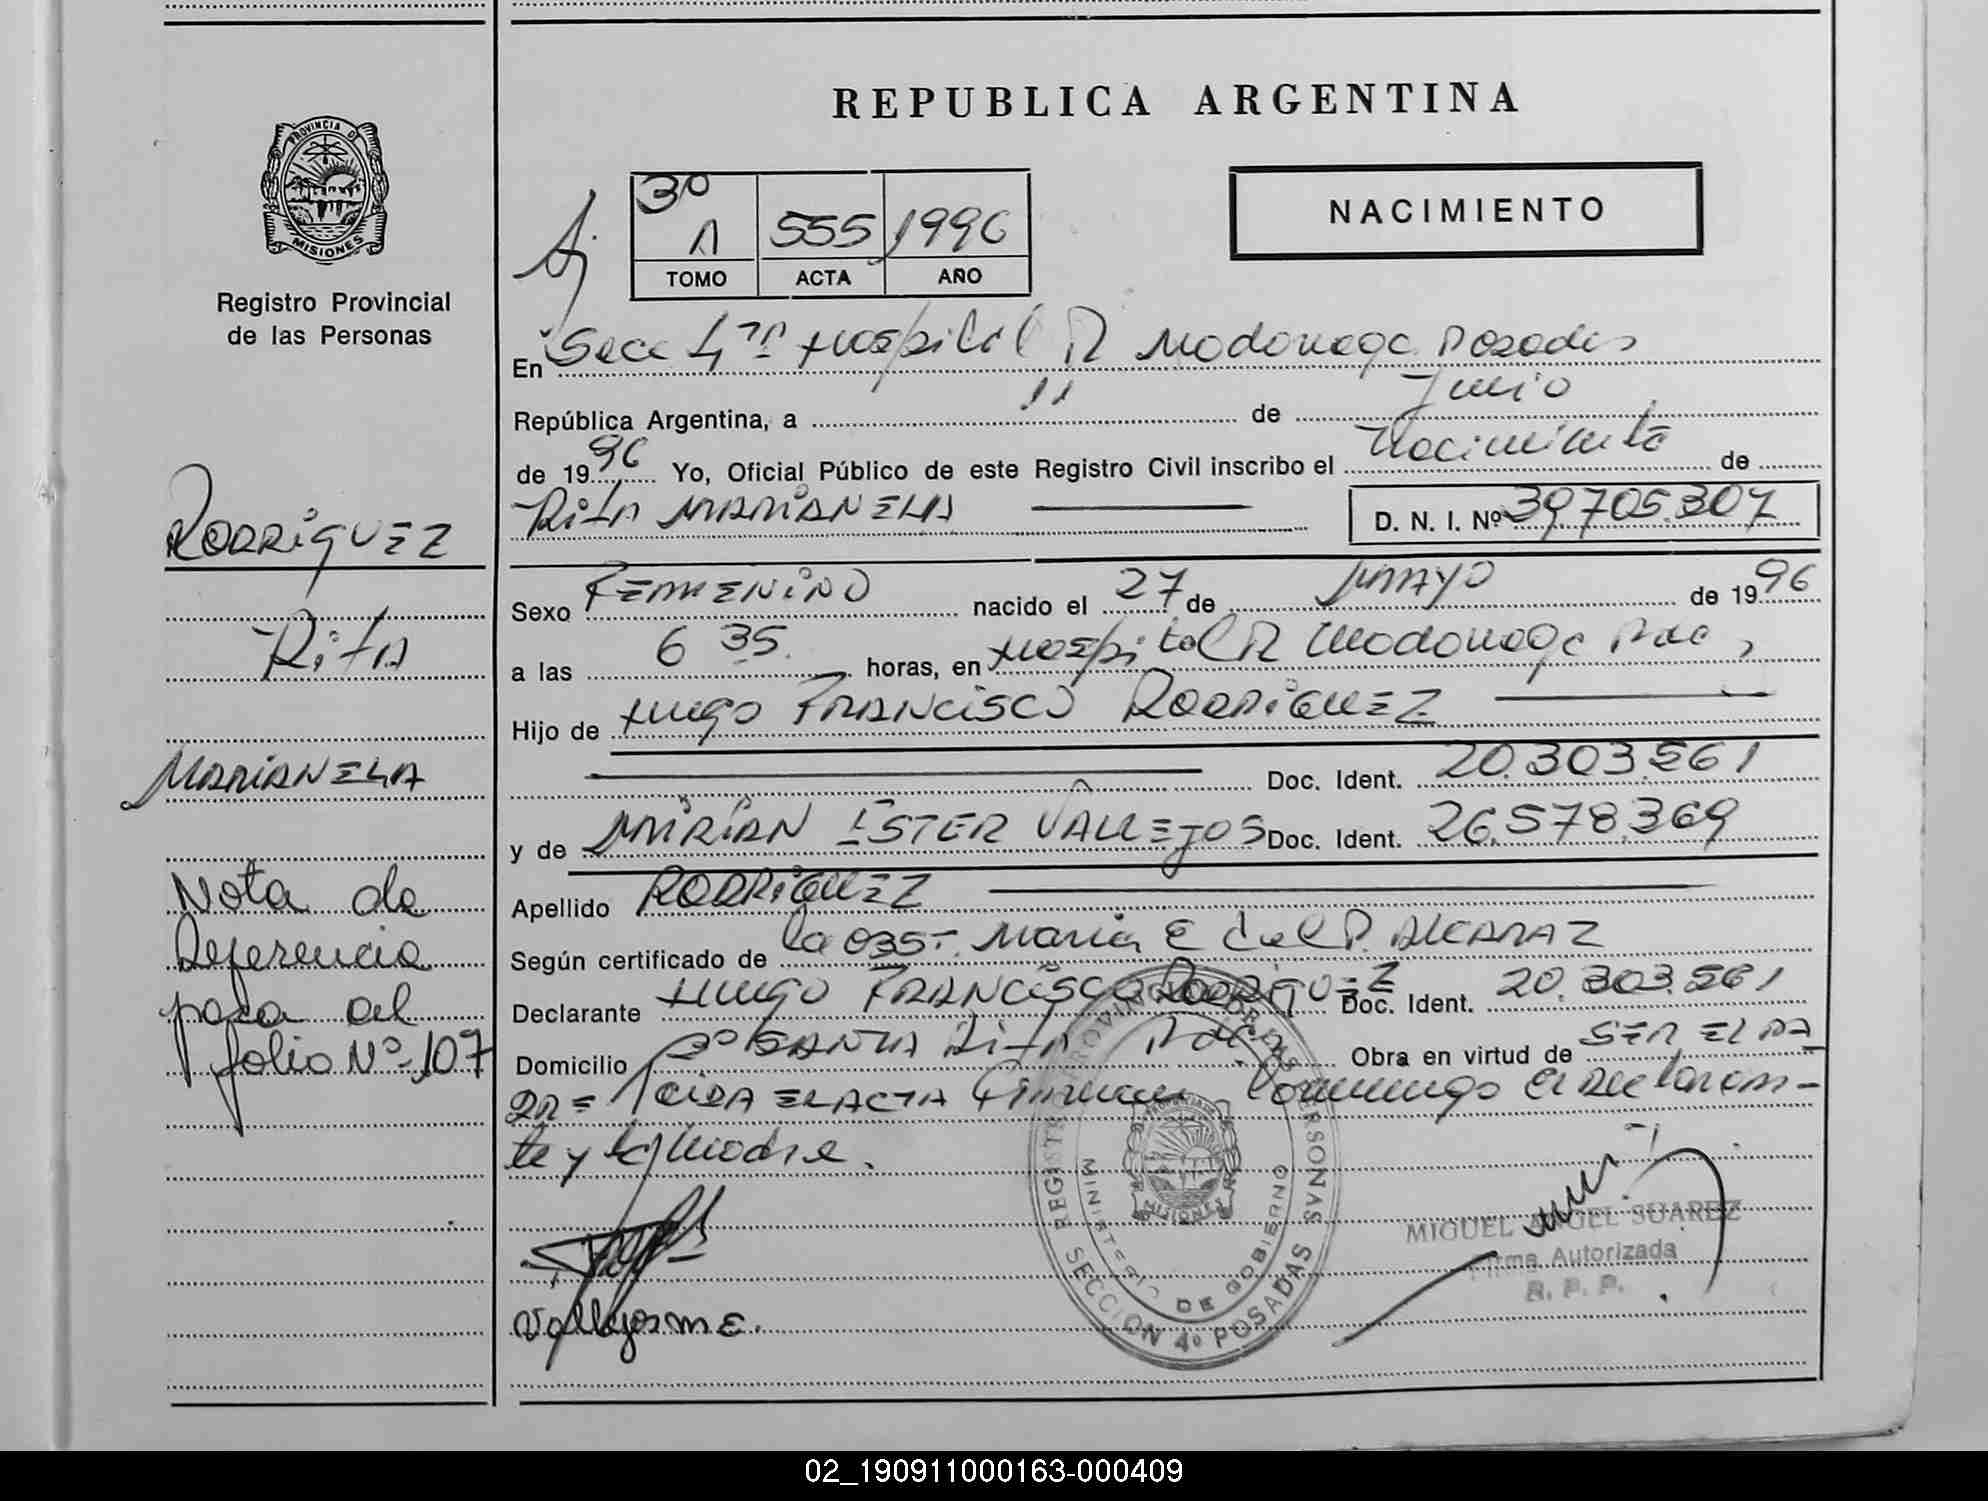 REPUBLICA ARGENTINA
PROVINCIA DE
MISIONES
Registro Provincial
de las Personas
3º
A 555 1996
TOMO ACTA AÑO
NACIMIENTO
En Secc 4ta Hospital R Madariaga Posadas
República Argentina, a 11 de Junio
de 1996 Yo, Oficial Público de este Registro Civil inscribo el Nacimiento de
Rita MARIANELA D. N. I. Nº 39.705.307
Sexo FEMENINO nacido el 27 de MAYO de 1996
a las 6 35 horas, en Hospital R Madariaga Pdas
Hijo de Hugo FRANCISCO RODRIGUEZ
Doc. Ident. 20.303.561
y de MIRIAN ESTER VALLEJOS Doc. Ident. 26.578.369
Apellido RODRIGUEZ
Según certificado de la OBST. Maria E del P. ALCARAZ
Declarante Hugo FRANCISCO RODRIGUEZ Doc. Ident. 20.303.561
Domicilio Bº SANTA Rita Pdas Obra en virtud de SER EL PA
DRE LEIDA EL ACTA Firman Conmigo el Declaran-
te y la Madre.
Vallejos M E.
RODRIGUEZ
Rita
MARIANELA
Nota de
Referencia
pasa al
folio Nº 107
REGISTRO PROVINCIAL DE LAS PERSONAS
MINISTERIO DE GOBIERNO
MISIONES
SECCION 4º POSADAS
MIGUEL ANGEL SUAREZ
Firma Autorizada
R. P. P.
02_190911000163-000409